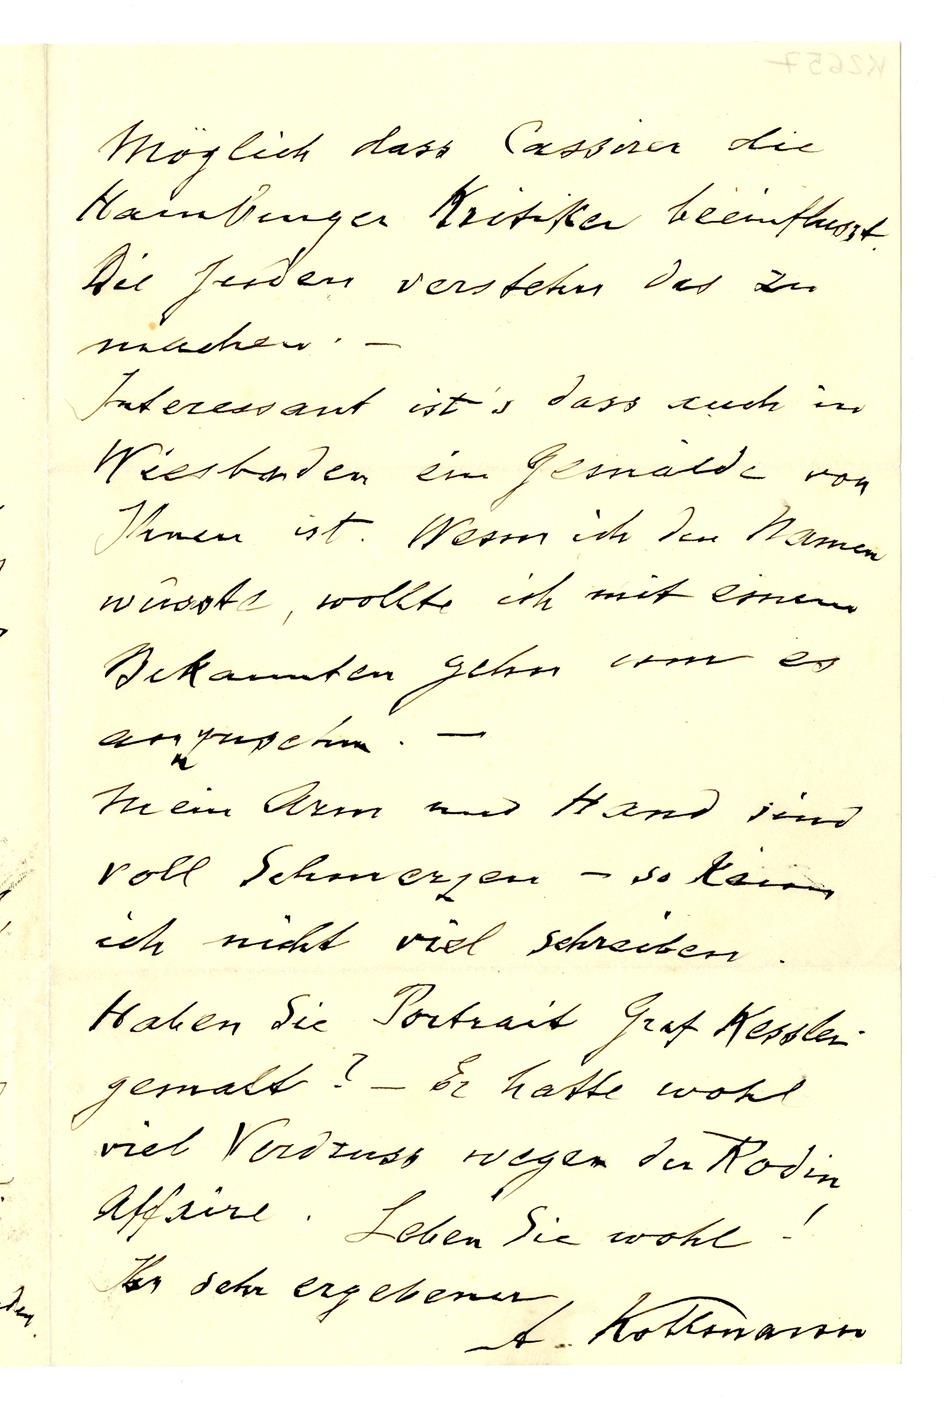 Möglich dass Cassirer die
Hamburger Kritiker beeinflusst.
Die Juden verstehn das zu
machen. —
Interessant ist's dass auch in
Wiesbaden ein Gemälde von
Ihnen ist. Wenn ich den Namen
wüsste, wollte ich mit einem
Bekannten gehn um es
anzusehn. —
Mein Arm und Hand sind
voll Schmerzen — so kann
ich nicht viel schreiben.
Haben Sie Portrait Graf Kessler
gemalt? — Er hatte wohl
viel Verdruss wegen der Rodin
Affaire. Leben Sie wohl!
Ihr sehr ergebener
A. Kollmann
K2657